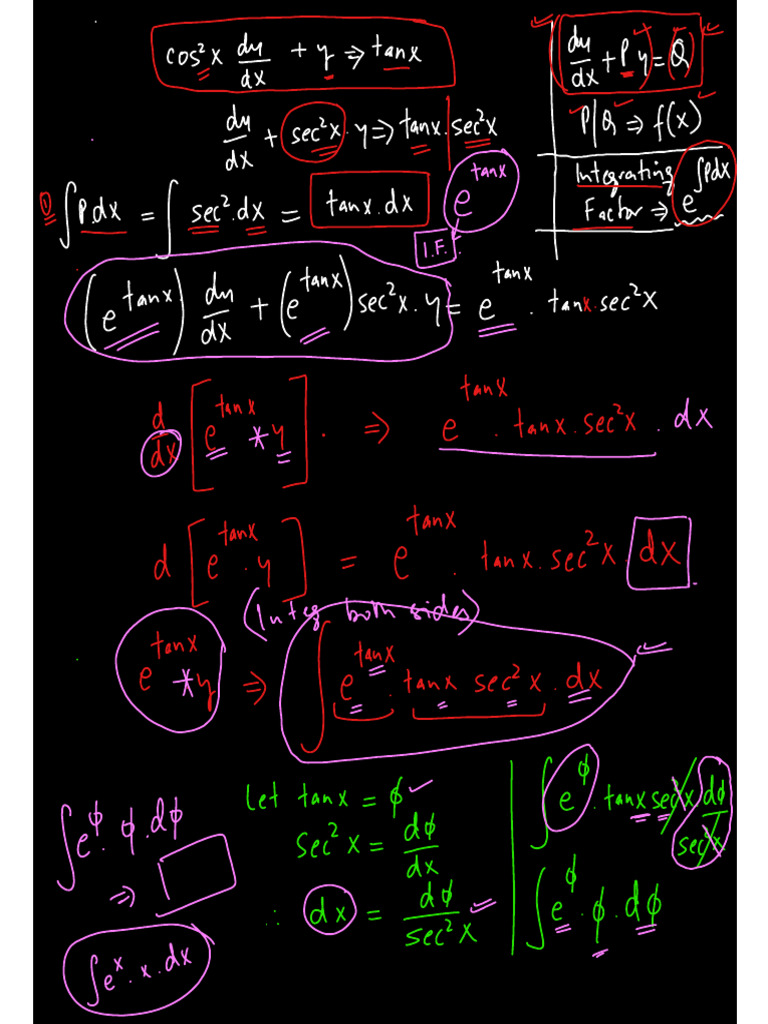 cos²x dy/dx + y ⇒ tanx
dy/dx + Py = Q
P|Q ⇒ f(x)
dy/dx + sec²x · y ⇒ tanx · sec²x
Integrating
Factor ⇒ e^∫Pdx
① ∫P.dx = ∫sec².dx = tanx.dx
e^tanx
I.F.
(e^tanx) dy/dx + (e^tanx) sec²x · y = e^tanx · tanx · sec²x
d/dx [e^tanx * y] · ⇒ e^tanx · tanx · sec²x · dx
d [e^tanx · y] = e^tanx · tanx · sec²x dx
(Integ both sides)
e^tanx * y ⇒ ∫e^tanx · tanx sec²x · dx
Let tanx = ϕ
sec²x = dϕ/dx
∴ dx = dϕ/sec²x
∫e^ϕ · tanx sec²x dϕ/sec²x
∫e^ϕ · ϕ · dϕ
∫e^ϕ · ϕ · dϕ
⇒
∫e^x · x · dx